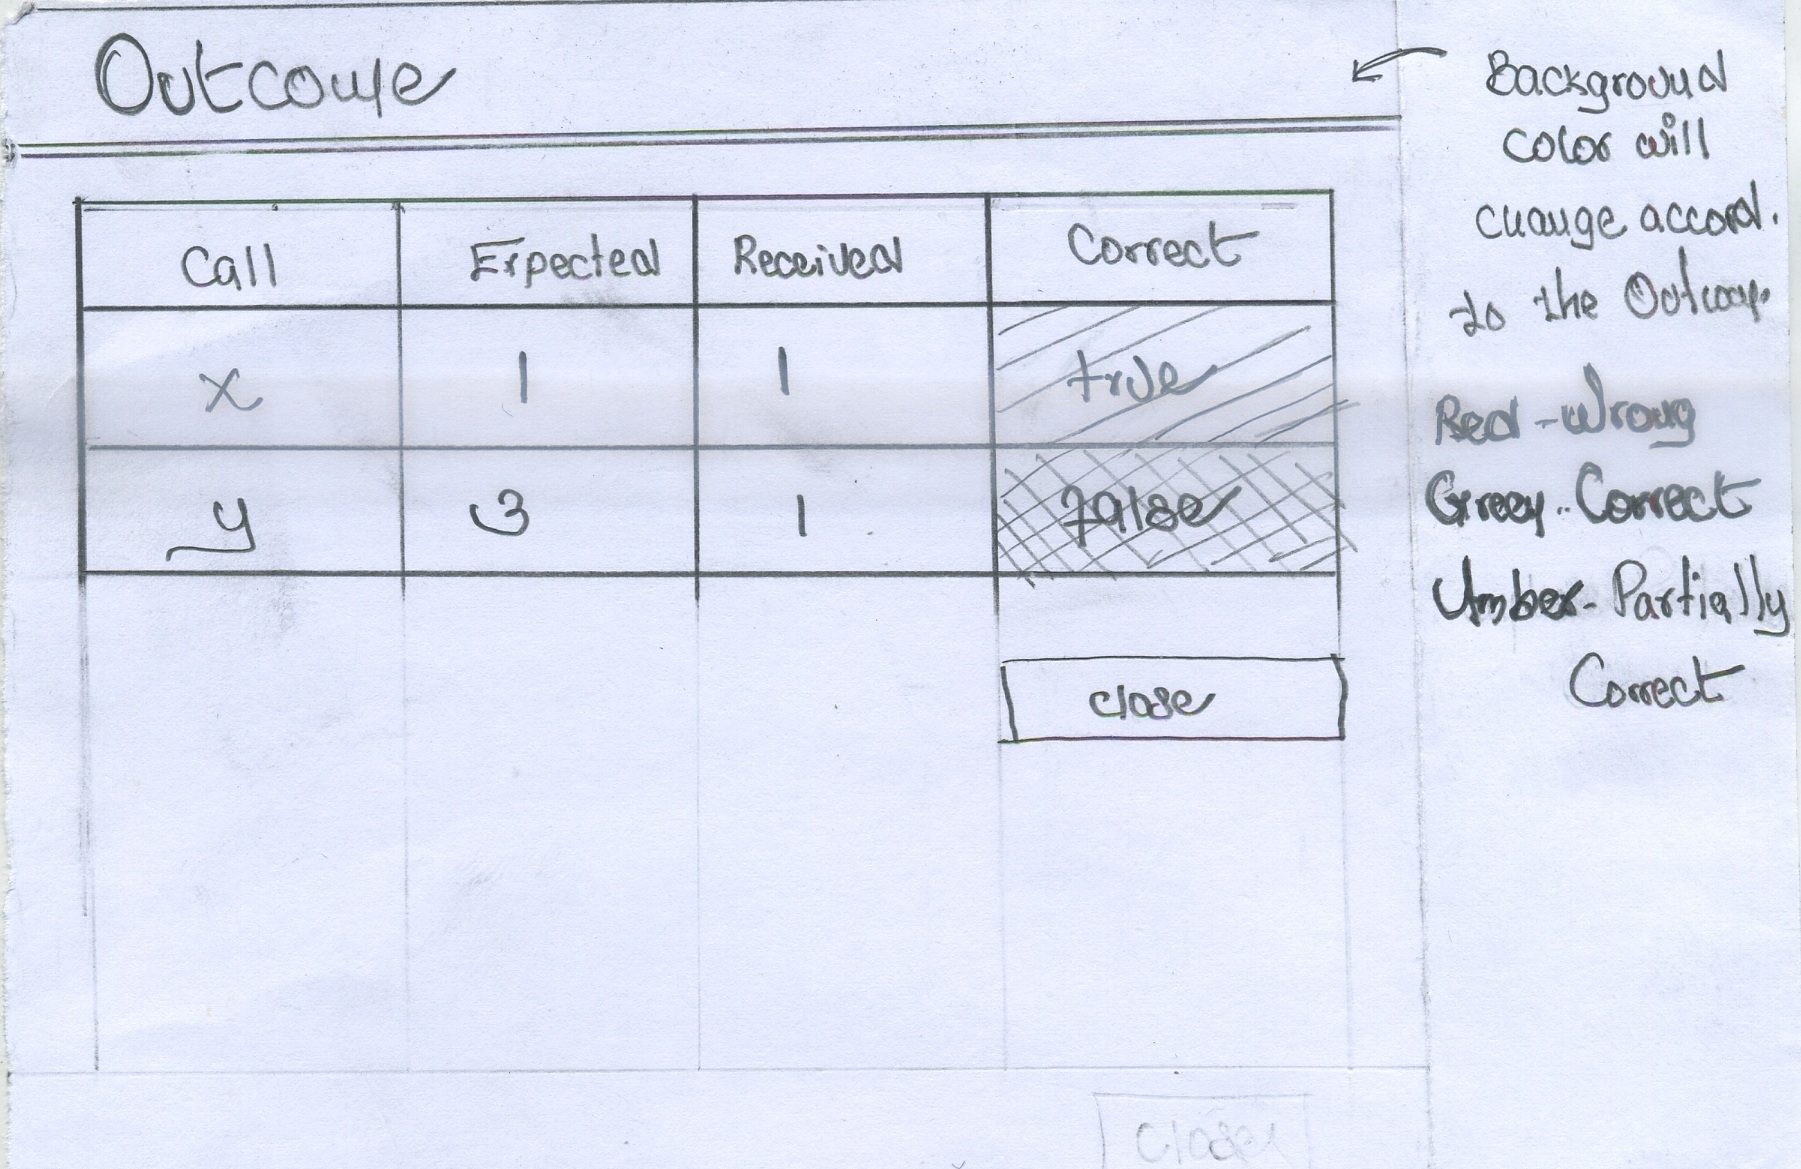 Outcome
Call Expected Received Correct
x 1 1 true
y 3 1 false
close
close
Background
color will
change accord.
to the Outcome
Red - Wrong
Green - Correct
Umber - Partially
Correct